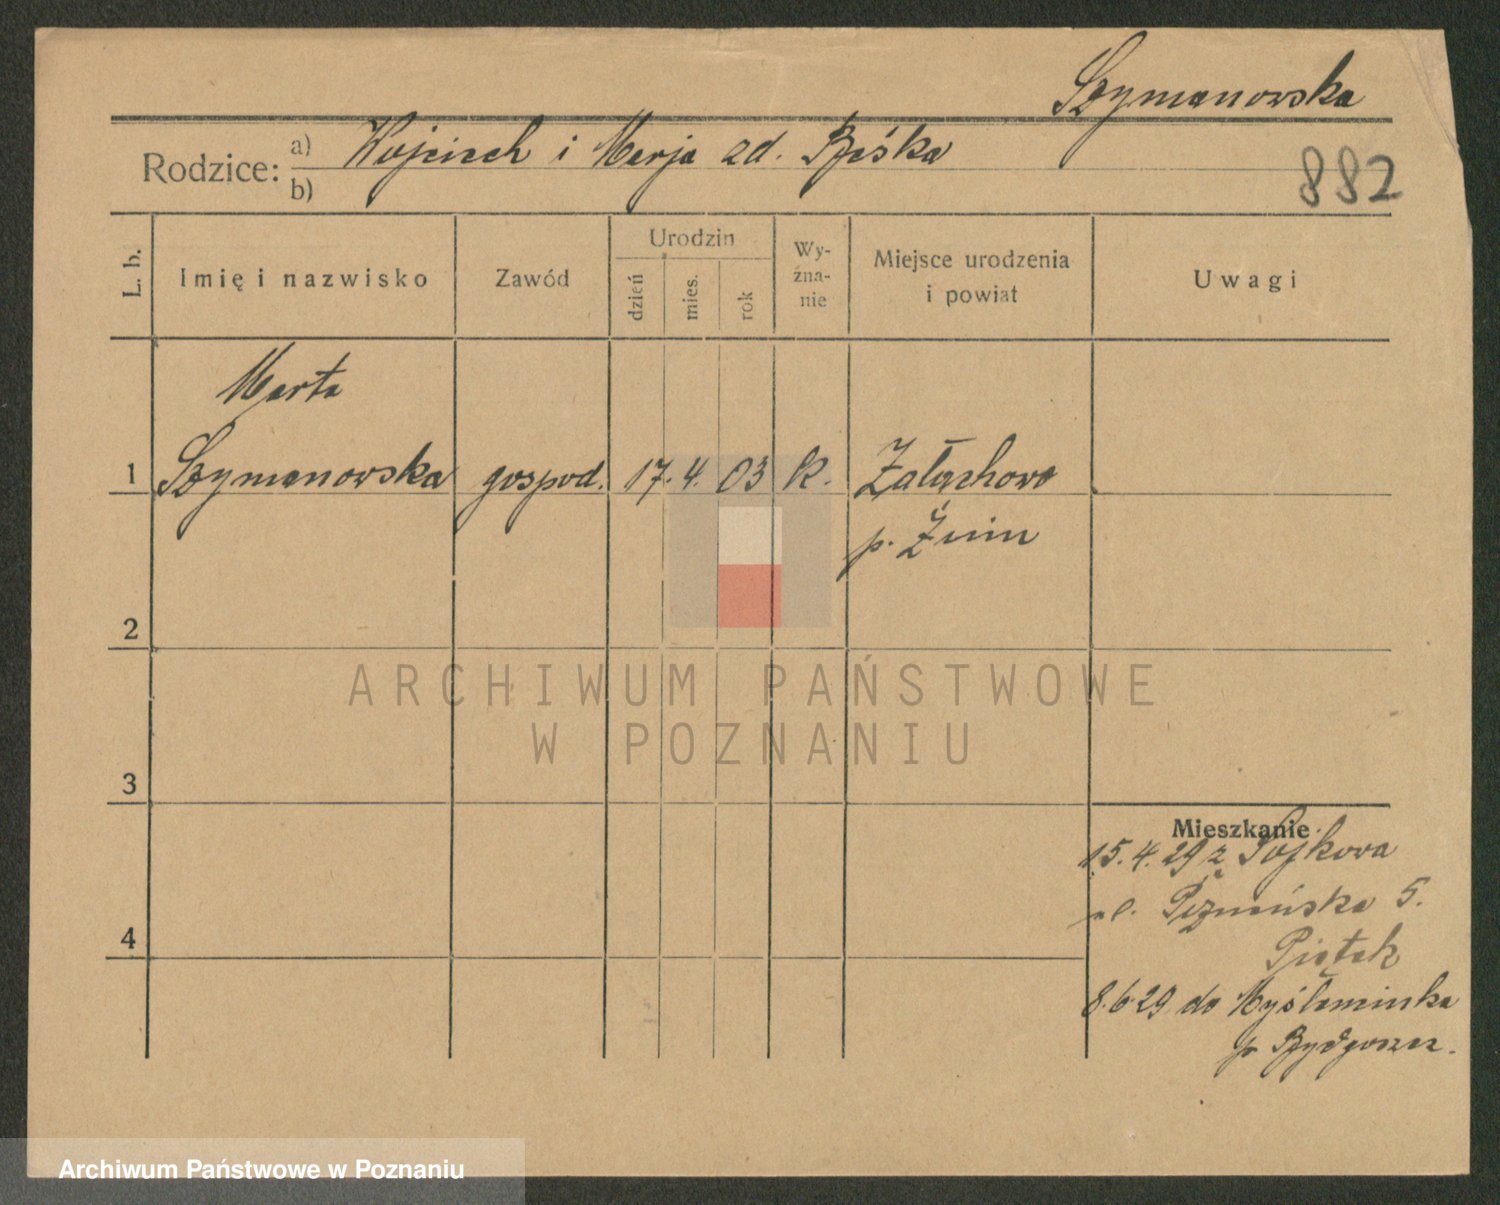 Szymanowska
Rodzice: a) Wojciech i Marja zd. Bzśka
b)
882
L. b.
Imię i nazwisko
Zawód
Urodzin
dzień
mies.
rok
Wy-
źna-
nie
Miejsce urodzenia
i powiat
Uwagi
Marta
1 Szymanowska gospod. 17. 4. 03 k. Załachowo
p. Żnin
2
ARCHIWUM PAŃSTWOWE
W POZNANIU
3
Mieszkanie
15. 4. 29 z
ul. Poznańska 5.
Piątek
4
8. 6 29 do
p. Bydgoszcz.
Archiwum Państwowe w Poznaniu